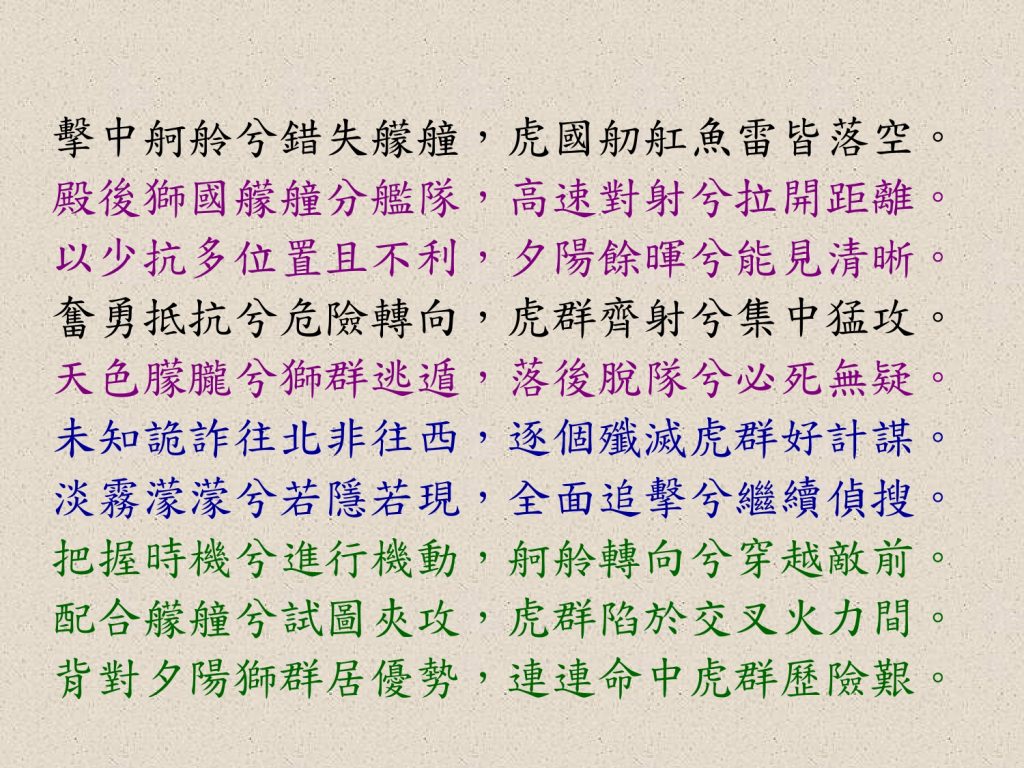 擊中舸舲兮錯失艨艟，虎國舠舡魚雷皆落空。
殿後獅國艨艟分艦隊，高速對射兮拉開距離。
以少抗多位置且不利，夕陽餘暉兮能見清晰。
奮勇抵抗兮危險轉向，虎群齊射兮集中猛攻。
天色朦朧兮獅群逃遁，落後脫隊兮必死無疑。
未知詭詐往北非往西，逐個殲滅虎群好計謀。
淡霧濛濛兮若隱若現，全面追擊兮繼續偵搜。
把握時機兮進行機動，舸舲轉向兮穿越敵前。
配合艨艟兮試圖夾攻，虎群陷於交叉火力間。
背對夕陽獅群居優勢，連連命中虎群歷險艱。